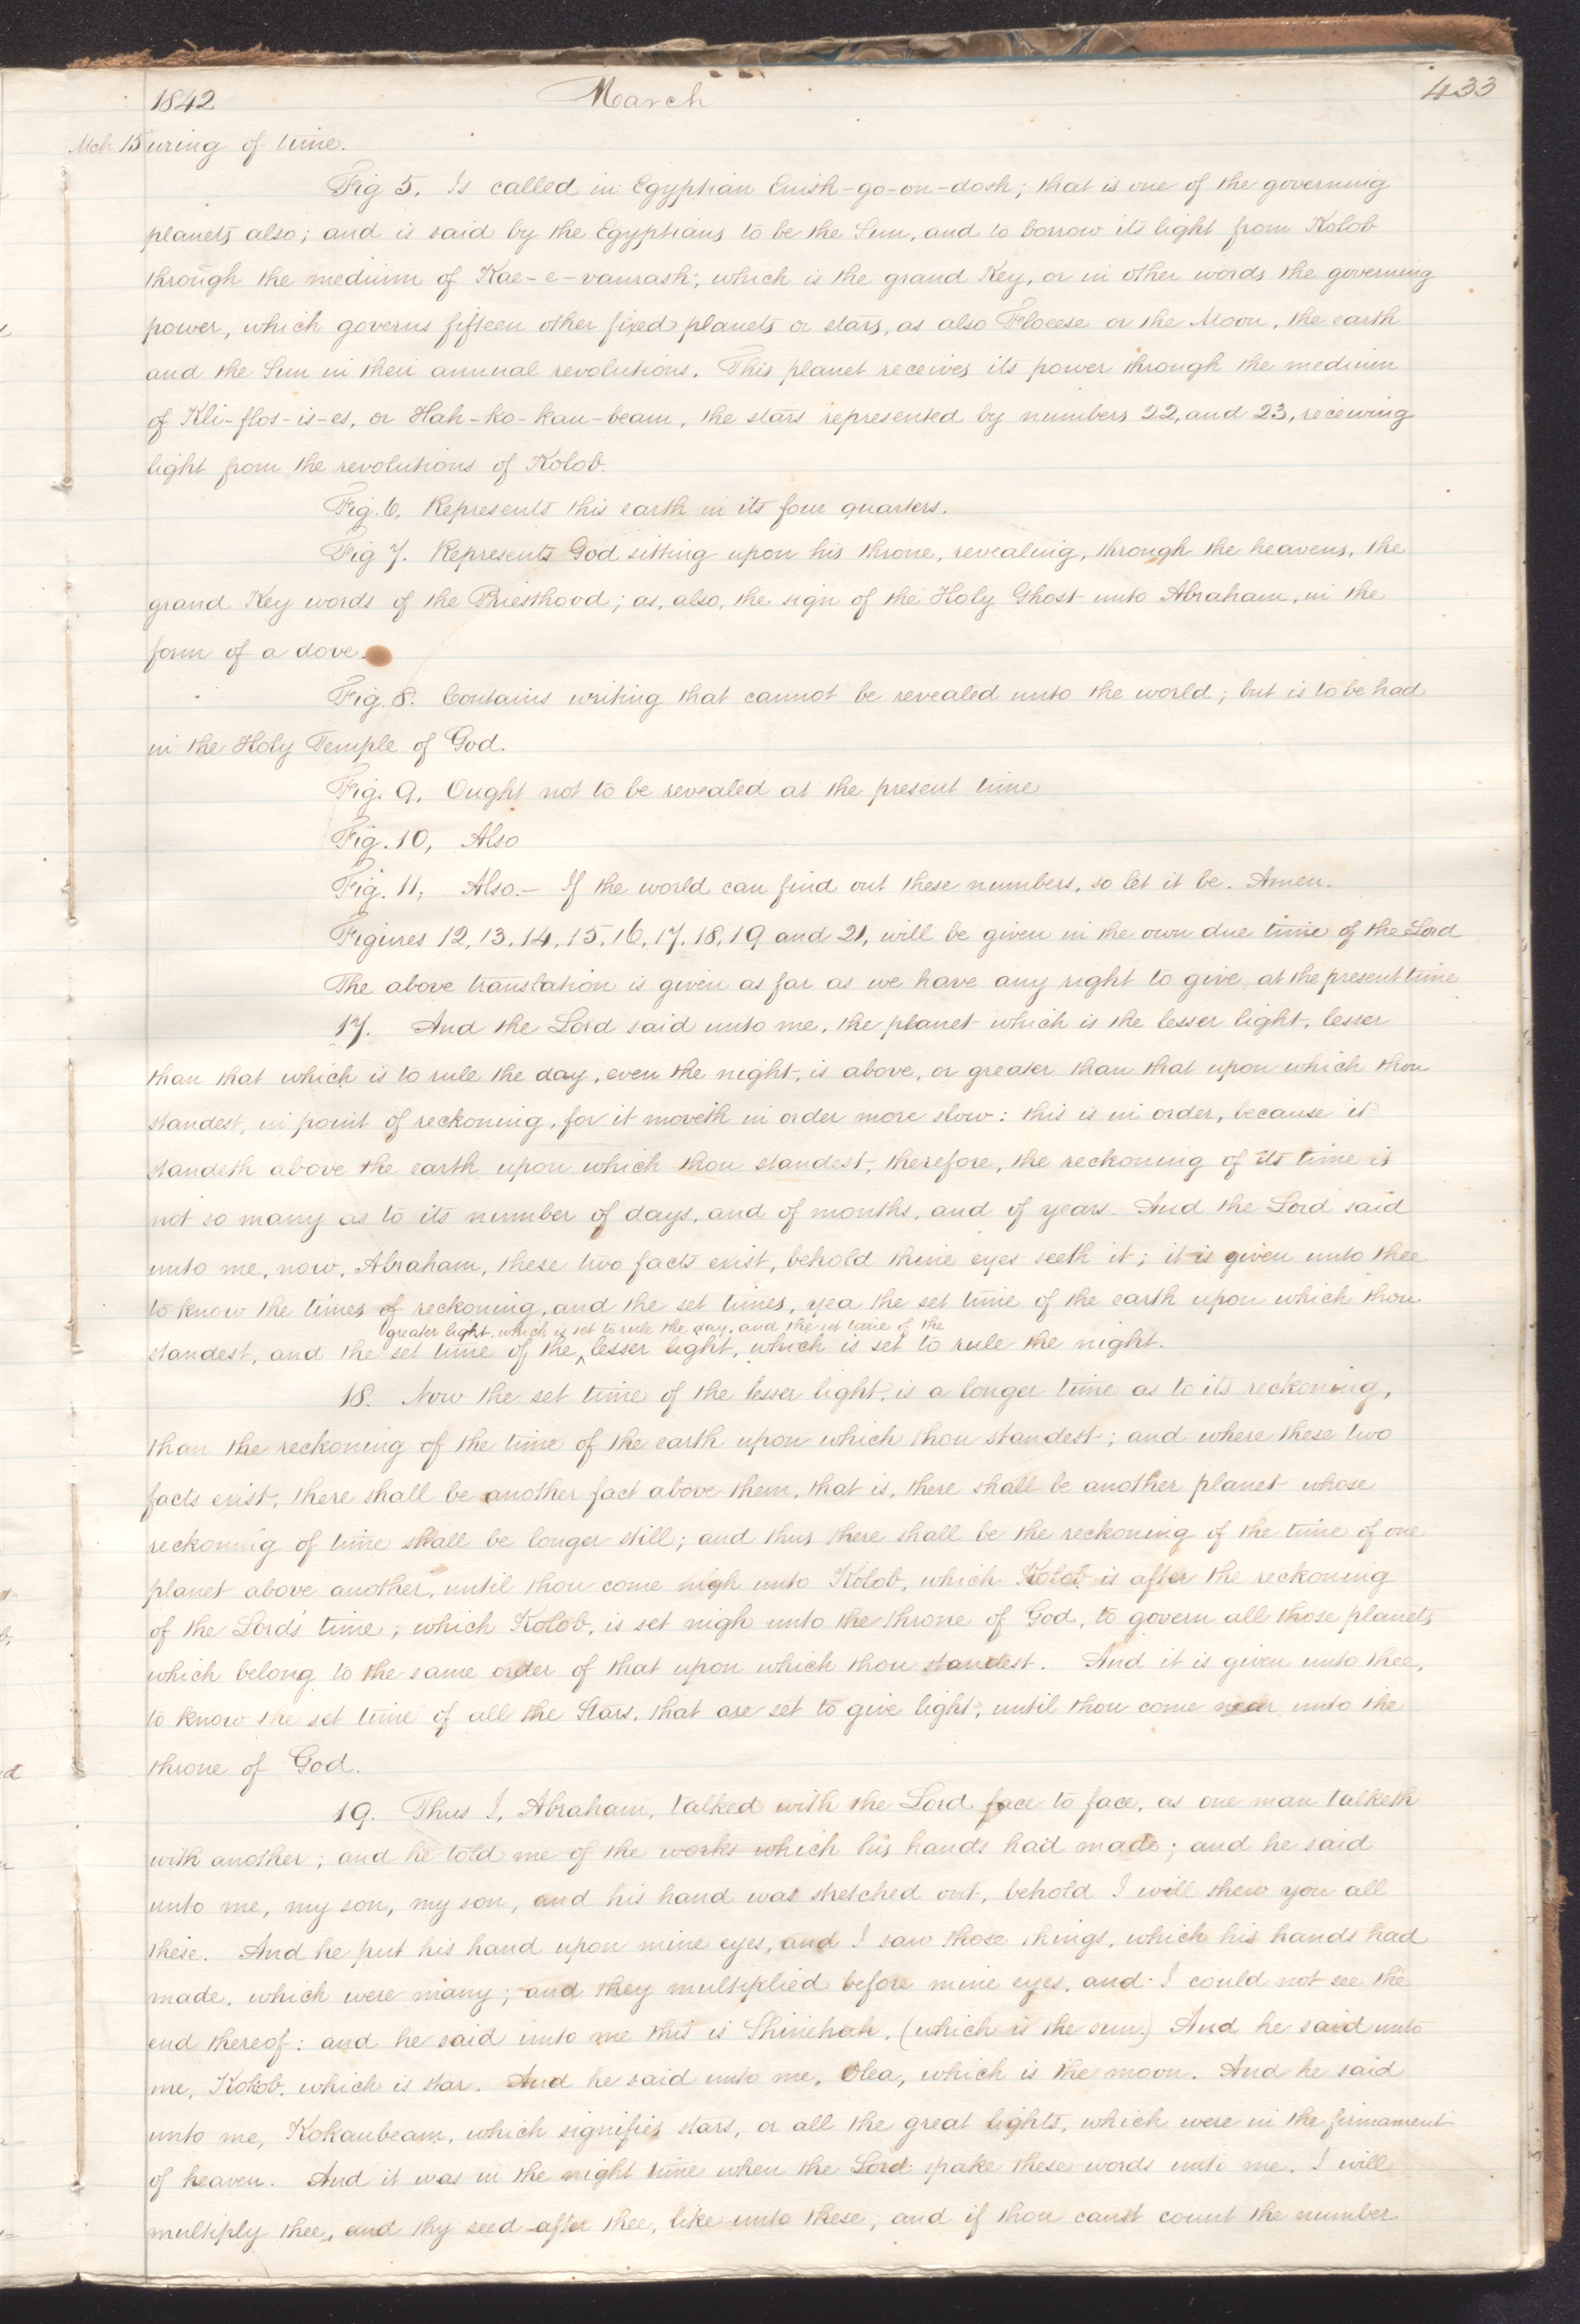 1842 March 433
Mch 15 uring of time.
Fig 5. Is called in Egyptian Enish-go-on-dosh; that is one of the governing
planets also; and is said by the Egyptians to be the Sun, and to borrow its light from Kolob
through the medium of Kae-e-vanrash; which is the grand Key, or in other words the governing
power, which governs fifteen other fixed planets or stars, as also Floeese or the Moon, the earth
and the Sun in their annual revolutions. This planet receives its power through the medium
of Kli-flos-is-es, or Hah-ko-kau-beam, the stars represented by numbers 22, and 23, receiving
light from the revolutions of Kolob.
Fig. 6, Represents this earth in its four quarters.
Fig 7. Represents God sitting upon his throne, revealing, through the heavens, the
grand Key words of the Priesthood; as, also, the sign of the Holy Ghost unto Abraham, in the
form of a dove.
Fig. 8. Contains writing that cannot be revealed unto the world; but is to be had
in the Holy Temple of God.
Fig. 9, Ought not to be revealed at the present time
Fig. 10, Also
Fig. 11, Also.— If the world can find out these numbers, so let it be. Amen.
Figures 12, 13, 14, 15, 16, 17, 18, 19 and 21, will be given in the own due time of the Lord
The above translation is given as far as we have any right to give, at the present time
17. And the Lord said unto me, the planet which is the lesser light, lesser
than that which is to rule the day, even the night, is above, or greater than that upon which thou
standest, in point of reckoning, for it moveth in order more slow: this is in order, because it
standeth above the earth upon which thou standest, therefore, the reckoning of its time is
not so many as to its number of days, and of months, and of years. And the Lord said
unto me, now, Abraham, these two facts exist, behold thine eyes seeth it; it is given unto thee
to know the times of reckoning, and the set times, yea the set time of the earth upon which thou
greater light, which is set to rule the day, and the set time of the
standest, and the set time of the ^ lesser light, which is set to rule the night.
18. Now the set time of the lesser light, is a longer time as to its reckoning,
than the reckoning of the time of the earth upon which thou standest; and where these two
facts exist, there shall be another fact above them, that is, there shall be another planet whose
reckoning of time shall be longer still; and thus there shall be the reckoning of the time of one
planet above another, until thou come nigh unto Kolob, which Kolob is after the reckoning
of the Lord's time; which Kolob, is set nigh unto the throne of God, to govern all those planets
which belong to the same order of that upon which thou standest. And it is given unto thee,
to know the set time of all the Stars, that are set to give light, until thou come near unto the
throne of God.
19. Thus I, Abraham, talked with the Lord face to face, as one man talketh
with another; and he told me of the works which his hands had made; and he said
unto me, my son, my son, and his hand was stretched out, behold I will shew you all
these. And he put his hand upon mine eyes, and I saw those things, which his hands had
made, which were many; and they multiplied before mine eyes, and I could not see the
end thereof: and he said unto me this is Shinehah, (which is the sun.) And he said unto
me, Kokob, which is star. And he said unto me, Olea, which is the moon. And he said
unto me, Kokaubeam, which signifies stars, or all the great lights, which were in the firmament
of heaven. And it was in the night time when the Lord spake these words unto me. I will
multiply thee, and thy seed after thee, like unto these; and if thou canst count the number